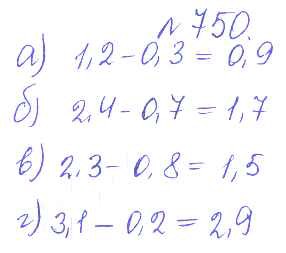 № 750.
а) 1,2 - 0,3 = 0,9
б) 2,4 - 0,7 = 1,7
в) 2,3 - 0,8 = 1,5
г) 3,1 - 0,2 = 2,9